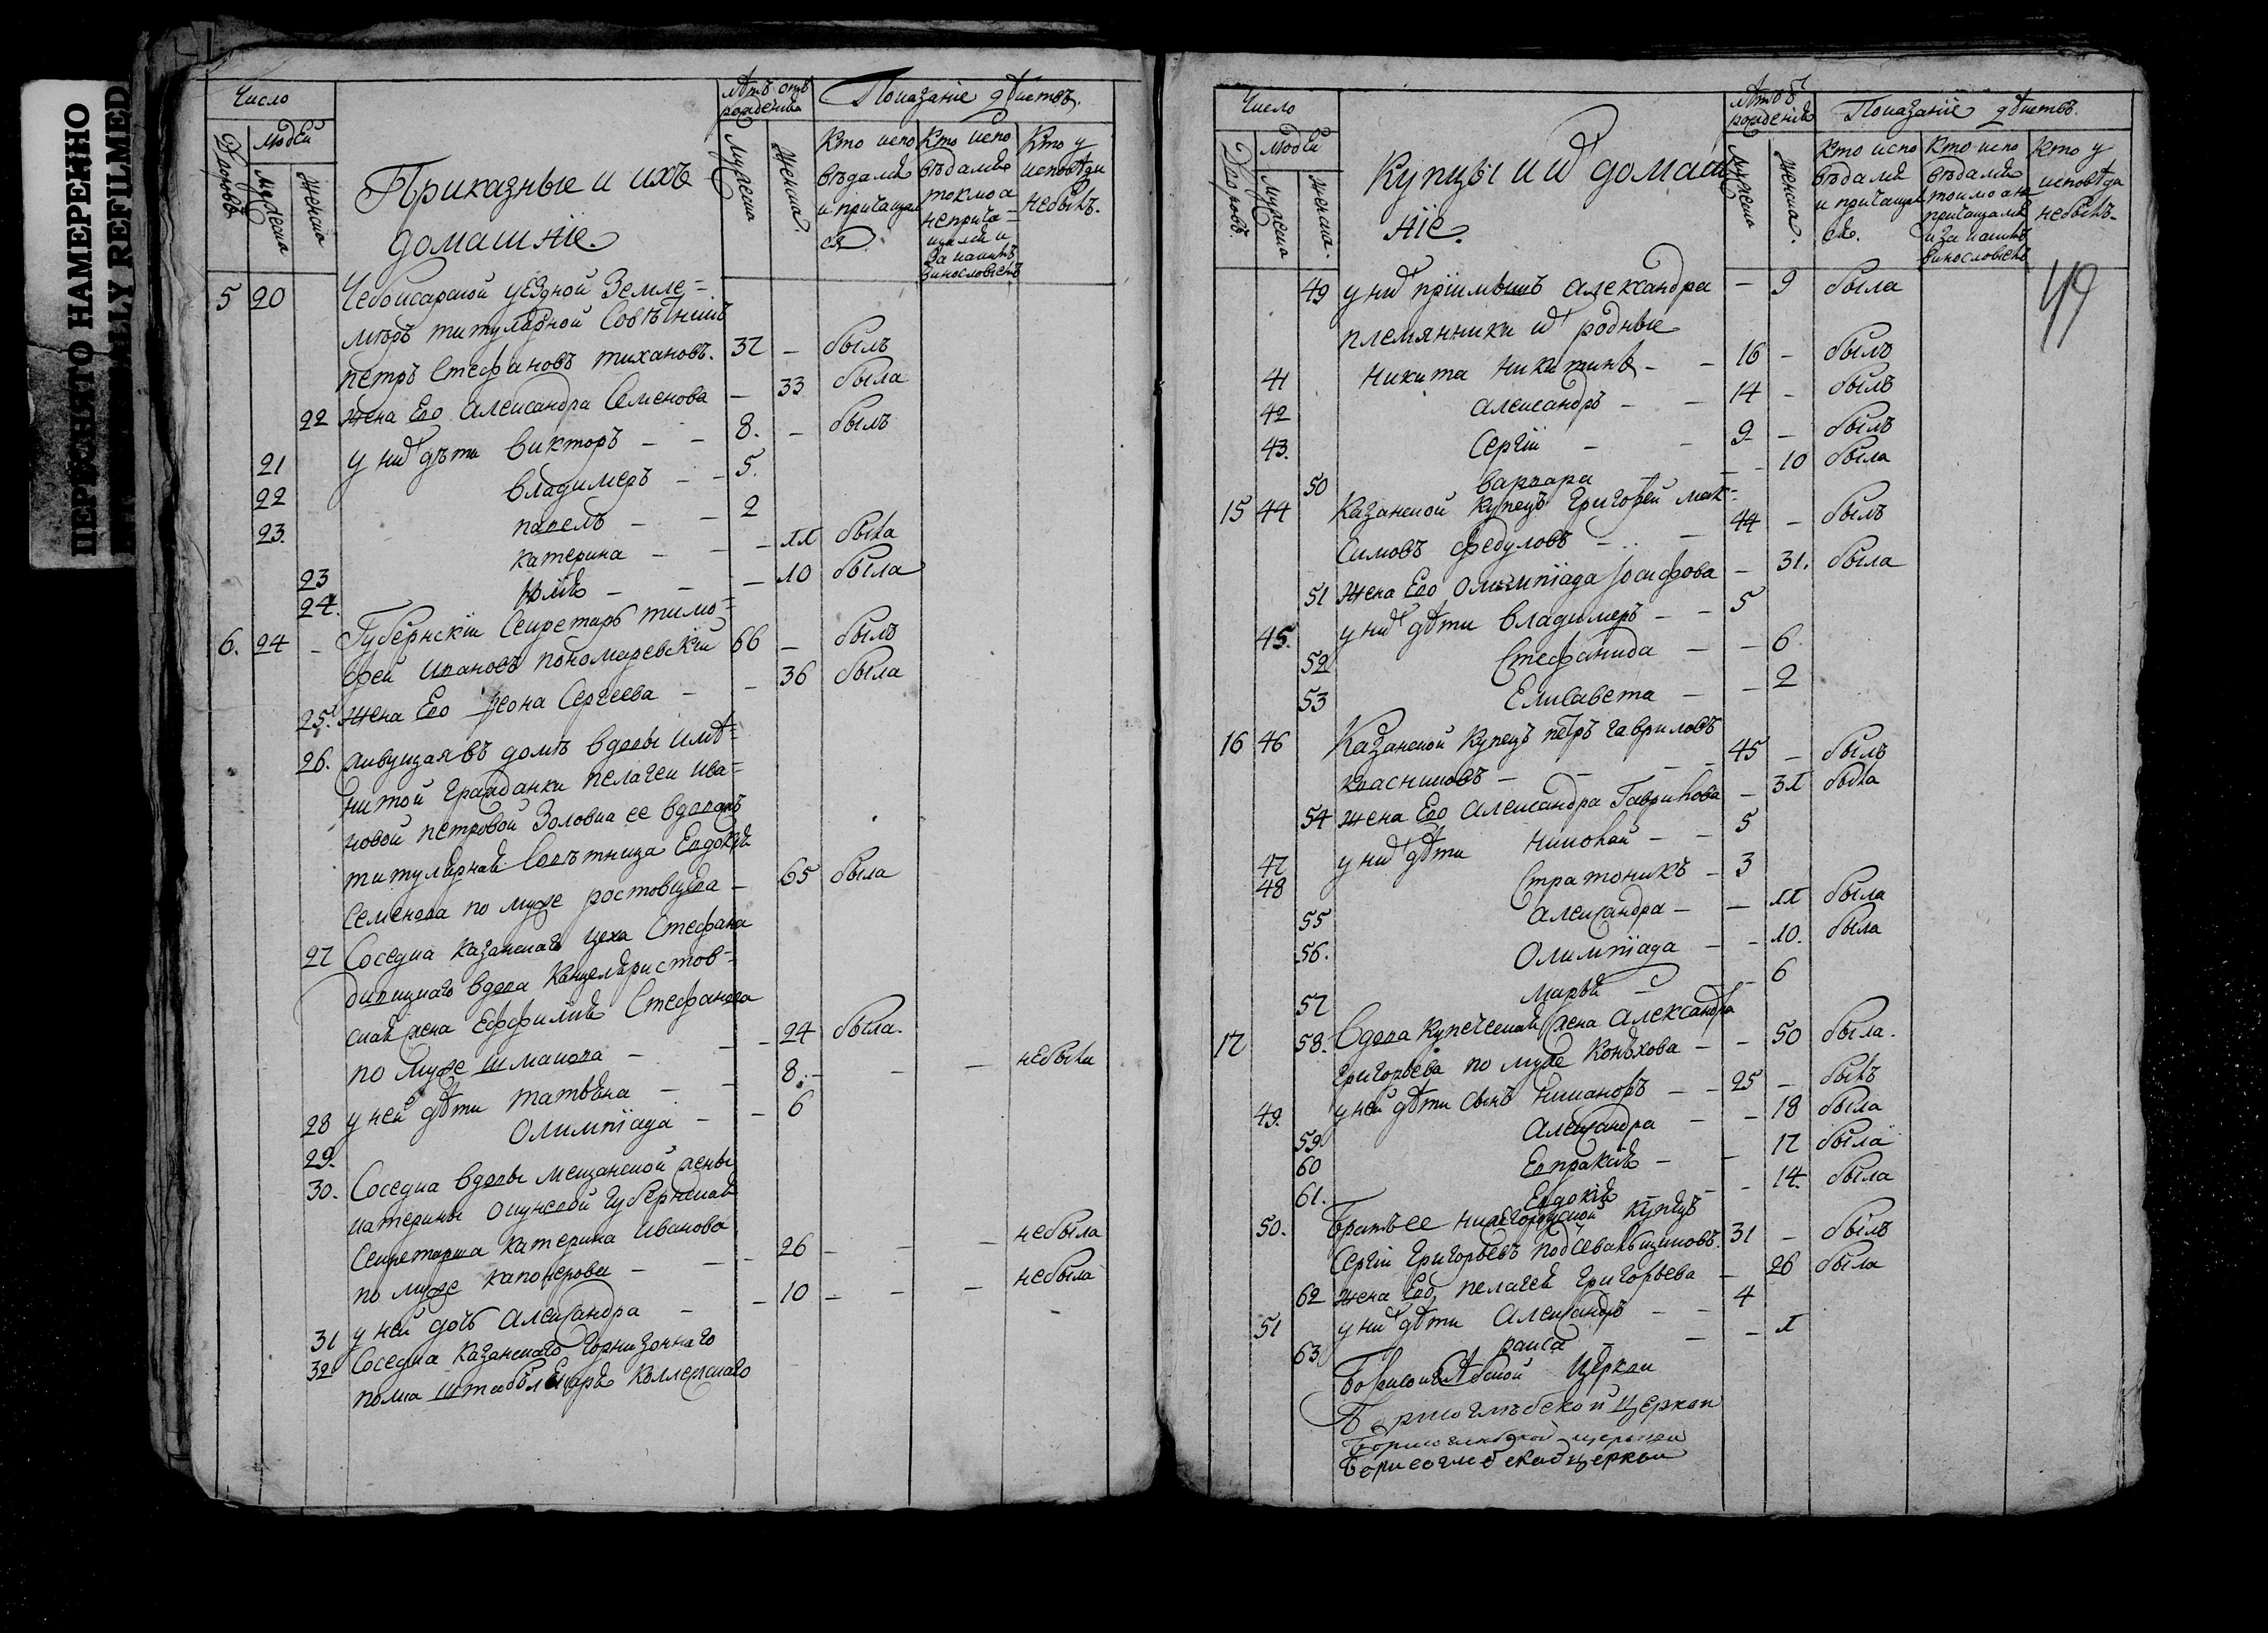 ПЕРЕСНЯТО НАМЕРЕННО
INTENTIONALLY REFILMED
Число
Людей
Дворовъ
Мужеска
Женска
Приказные и ихъ
домашніе.
Лѣтъ отъ
рожденія
Мужеска
Женска.
Показаніе дѣйствъ.
Кто испо
вѣдался
и причащал
ся
Кто испо
вѣдался
токмо а
неприча-
щался и
за какимъ
винословіемъ
Кто у
исповѣди
небылъ.
5 20 Чебоксарской уѣздной Земле-
мѣръ титулярной Совѣтникъ
петръ Стефановъ тихановъ. 37 – былъ
22 жена Его Александра Семенова – 33 была
21 у них дѣти викторъ – – 8. – былъ
22 владимеръ – – 5.
23. павелъ – – 2
23 катерина – – – 11 была
24. юлія – – – 10 была
6. 24 – Губернскіи Секретарь тимо-
фей ивановъ пономаревскій 66 – былъ
25. жена Его Сергеева – – 36 была
26. живущая въ домѣ вдовы имѣ-
нитой гражданки пелагеи ива-
новой петровой Золовка ее вдовая
титулярная Совѣтница Евдокія
Семенова по муже ростовцева – 65 была
27 Соседка казанскаго цеха Стефана
вдова Канцеляристов-
ская жена Ефимія Стефанова
по муже шмакова – – – 24 была.
28 у ней дѣти татьяна – – 8. – – – небыла
29. Олимпіада – – 6
30. Соседка вдовы мещанской жены
катерины Губернская
Секретарша катерина иванова
по муже – – – 26 – – – небыла
31 у ней дочь Александра – – 10 – – – небыла
32 Соседка казанскаго горнизоннаго
полка штабъ лекаря Коллежскаго
Число
Людей
Дворовъ
Мужеска
Женска.
Купцы и их домаш
ніе.
Лѣтъ от
рожденія
Мужеска
Женска.
Показаніе дѣйствъ.
Кто испо
вѣдался
и причащал
ся.
Кто испо
вѣдался
токмо а не
причащался
и за какимъ
винословіемъ
Кто у
исповѣди
небылъ-
49
49 у них пріимышъ александра – 9 была
племянники их родные
41 никита никитинъ – – 16 – былъ
42 александръ – – 14 – былъ
43. Сергіи – – 9 – былъ
50 варвара – – – 10 была
15 44 Казанской купецъ григорей мак-
симовъ федуловъ – – 44 – былъ
51 жена Его Олимпіада Іосифова – 31. была
45. у них дѣти владимеръ – – 5
52 Стефанида – – 6.
53 Елисавета – – 2
16 46 Казанской купецъ петръ гавриловъ
– – – 45 – былъ
54 жена Его Александра Гаврилова – 31 была
47 у них дѣти николай – – 5
48 Стратоникъ – 3
55 александра – – 11 была
56. Олимпіада – – 10. была
57 марья – – 6
17 58. вдова купеческая жена Александра
григорьева по муже Конюхова – – 50 была.
49. у ней дѣти сынъ никаноръ – – 25 – былъ
59 Александра – – 18 была
60 Евпраксія – – 17 была
61. Евдокія – – 14. была
50. братъ ее нижегородской купецъ
Сергіи григорьевъ подсевальщиковъ. 31 – былъ
62 жена Его пелагея григорьева – 26 была
51 у них дѣти Александръ – – 4
63 раиса – – – 1
Борисоглѣбской Церкви
Борисоглѣбской церкви
Борисоглебской церкви
Борисоглебской церкви